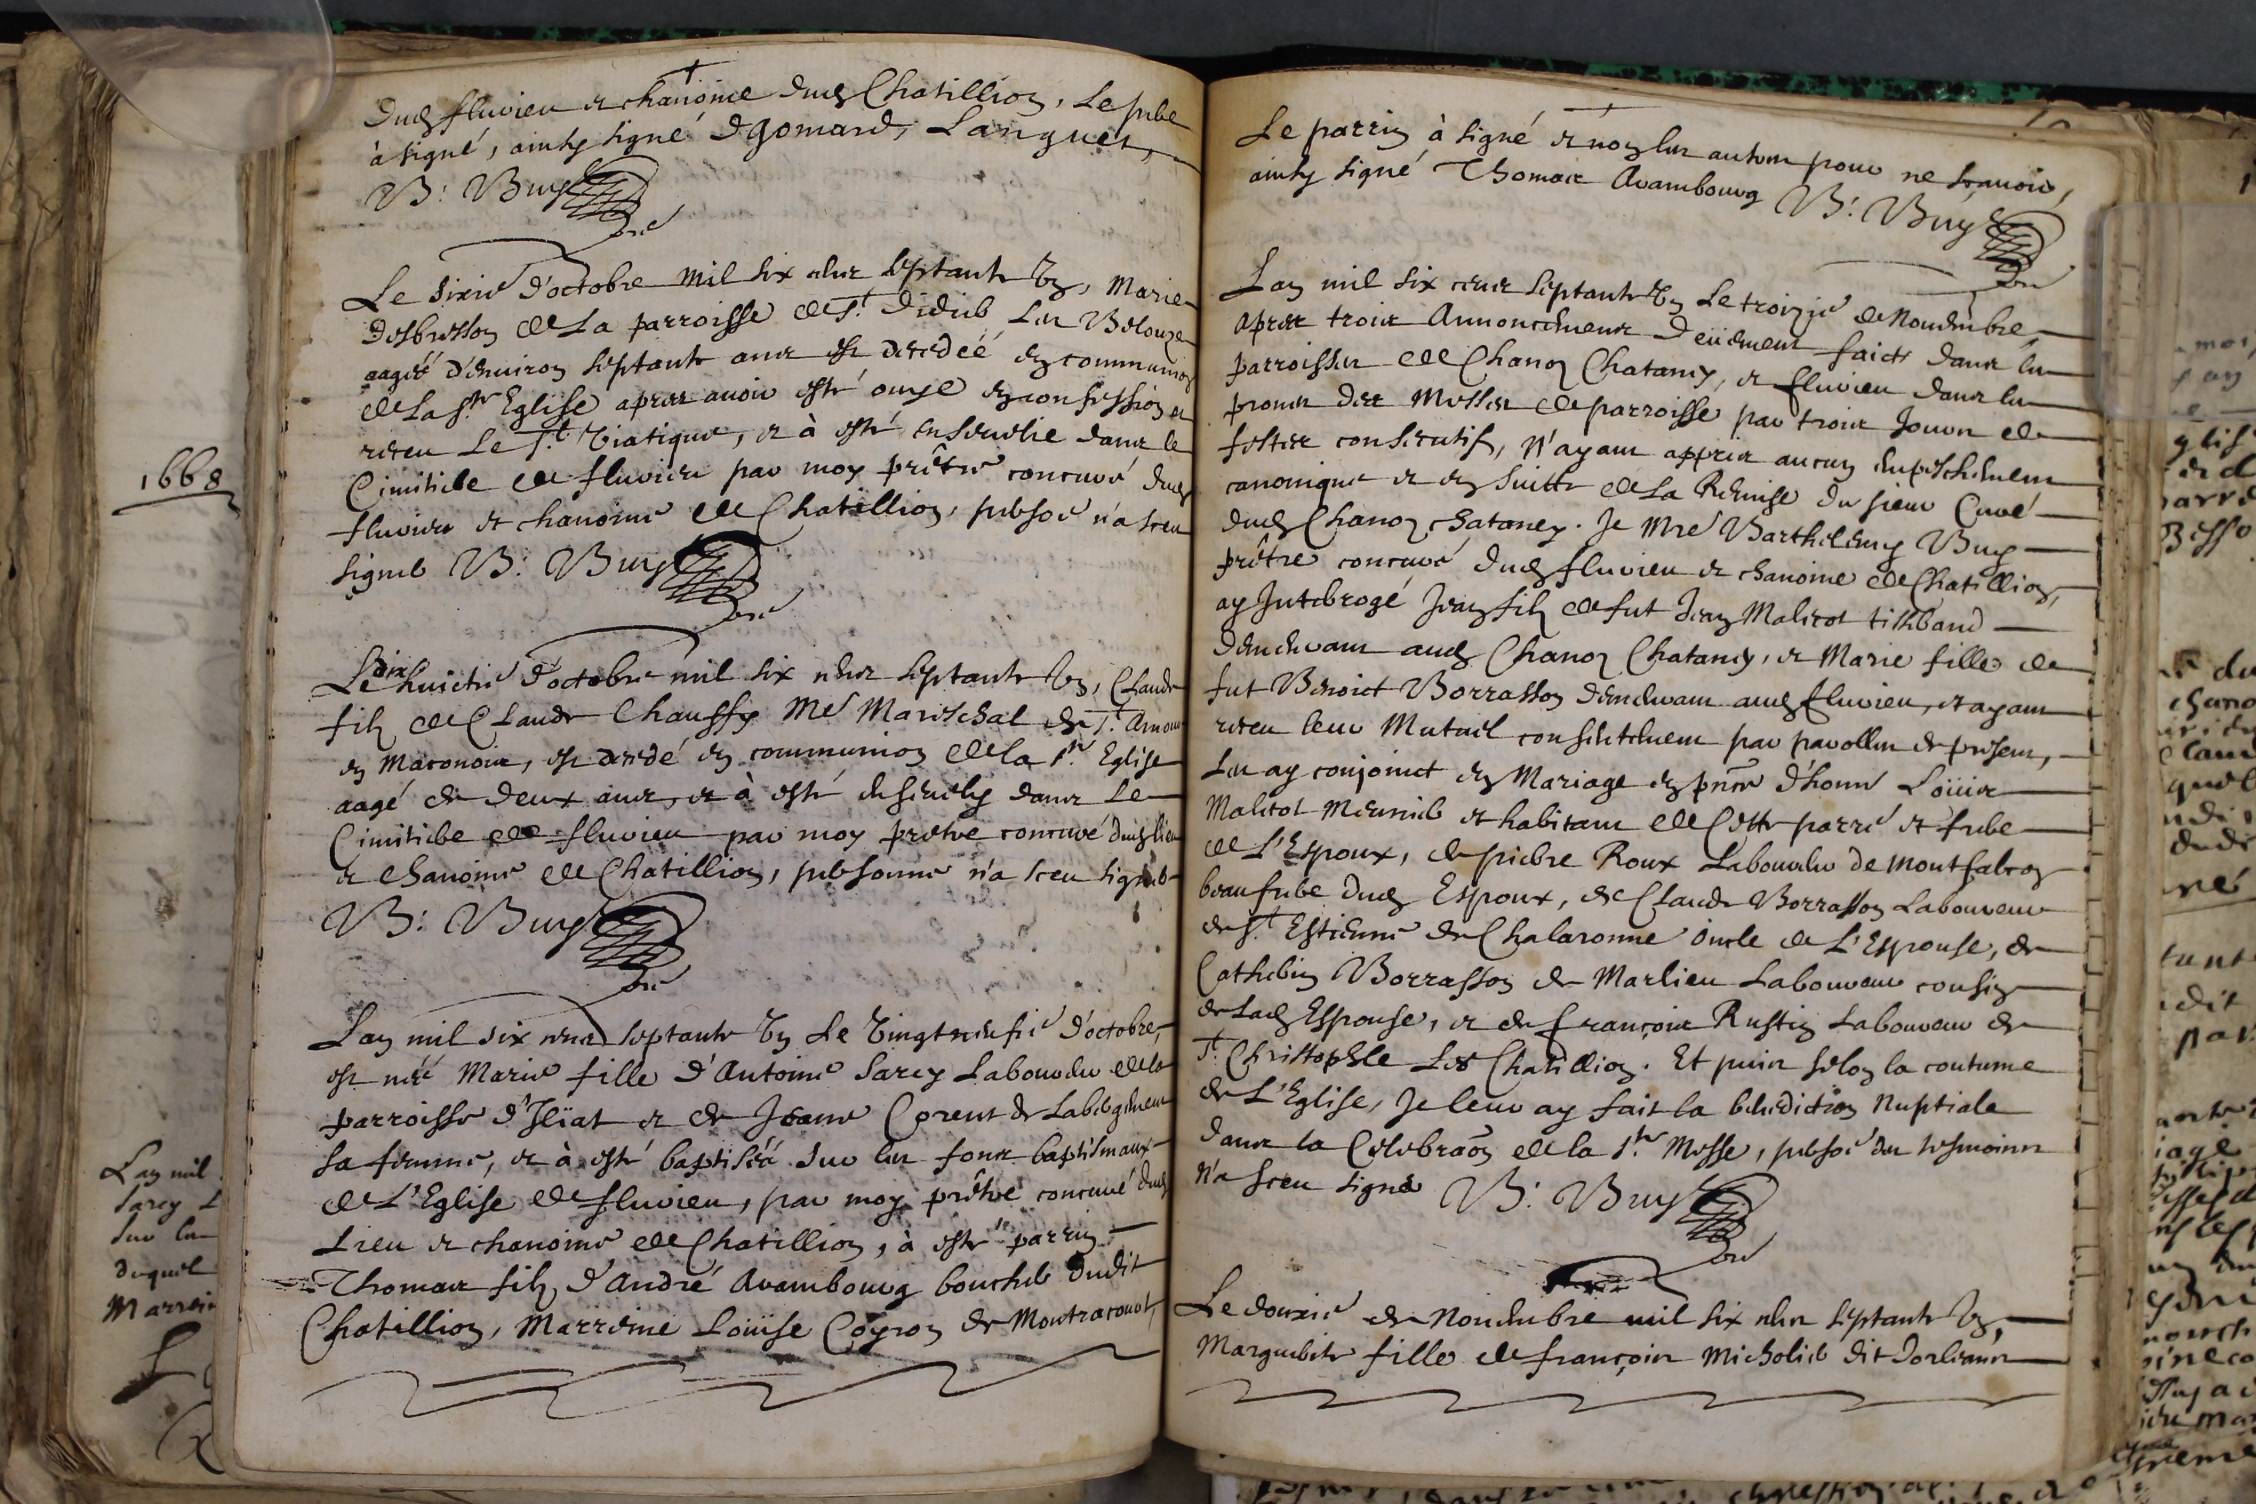 dud fluvieu et chanoine dud Chatillion, Le pere
à signé, ainsy signé Dgomard, Languet,
B: Buy
Le sixie d'octobre mil six cens septante Un, Marie
Desbresson de La parroisse de St. Didier Les Belouze
aagée d'environ septante ans est decedéé en communion
de La ste Eglise apres avoir esté ouye en confession et
receu Le st. Viatique, et à esté ensevelie dans le
Cimitiere de fluvieu par moy prêtre concuré dud
fluvieu et chanoine de Chatillion, persoe n'a sceu
signer B: Buy
Le dix huictie d'octobre mil six cens septante Un, Claude
fils de Claude Chauffy Me Mareschal de St. Amour
en Maconois, est decedé en communion de la ste Eglise
aagé de deux ans, et à esté ensevely dans Le
Cimitiere de fluvieu par moy prêtre concuré dud lieu
et chanoine de Chatillion, personne n'a sceu signer
B: Buy
Lan mil six cens septante Un Le Vingt neufie d'octobre,
est néé Marie fille d'Antoine Sarcy Laboureur de la
parroisse d'Illiat et de Jeane Corent de Labergement
sa femme, et à esté baptiséé sur les fons baptismaux
de L'Eglise de fluvieu, par moy prêtre concuré dud
Lieu et chanoine de Chatillion, à esté parrin
Thomas fils d'André Avambourg boucher dudit
Chatillion, Marreine Loüise Coyron de Montracouol,
Le parrin à signé et non les autres pour ne scavoir,
ainsy signé Thomas Avambourg B: Buy
Lan mil six cens septante Un Le troizie de Novembre,
apres trois Annoncemens deüement faicts dans les
parroisses de Chanoz Chatanay, et fluvieu dans les
prones des Messes de parroisse par trois Jours de
festes consecutifs, N'ayant appris aucun empeschement
canonique et en suitte de La Remise du sieur Curé
dud Chanoz chatanay. Je Mre Barthelemy Buy
prêtre concuré dud fluvieu et chanoine de Chatillion,
ay Interrogé Jean fils de fut Jean Malicot tisserand
demeurant aud Chanoz Chatanay, et Marie fille de
fut Benoict Borrasson demeurant aud fluvieu, et ayant
receu leur Mutuel consentement par parolles de present,
Les ay conjoinct en Mariage en pnce d'honn Loüis
Malicot Meunier et habitant de Cette parre et frere
de L'Espoux, de pierre Roux Laboureur de Montfalcon
beaufrere dud Espoux, de Claude Borrasson Laboureur
de St. Estienne de Chalaronne Oncle de L'Espouse, de
Catherin Borrasson de Marlieu Laboureur cousin
de Lad Espouse, et de françois Rustin Laboureur de
St. Christophle Les Chatillion. Et puis selon la coutume
de L'Eglise, Je leur ay fait la benediction Nuptiale
dans la Celebraon de la ste. Messe, persoe des tesmoins
n'a sceu signer B: Buy
Le douzie de Novembre mil six cens septante Un,
Marguerite fille de françois Micholier dit Dorleans
1668
Lan mil
Sarcy L
sur les
duquel
Marrei